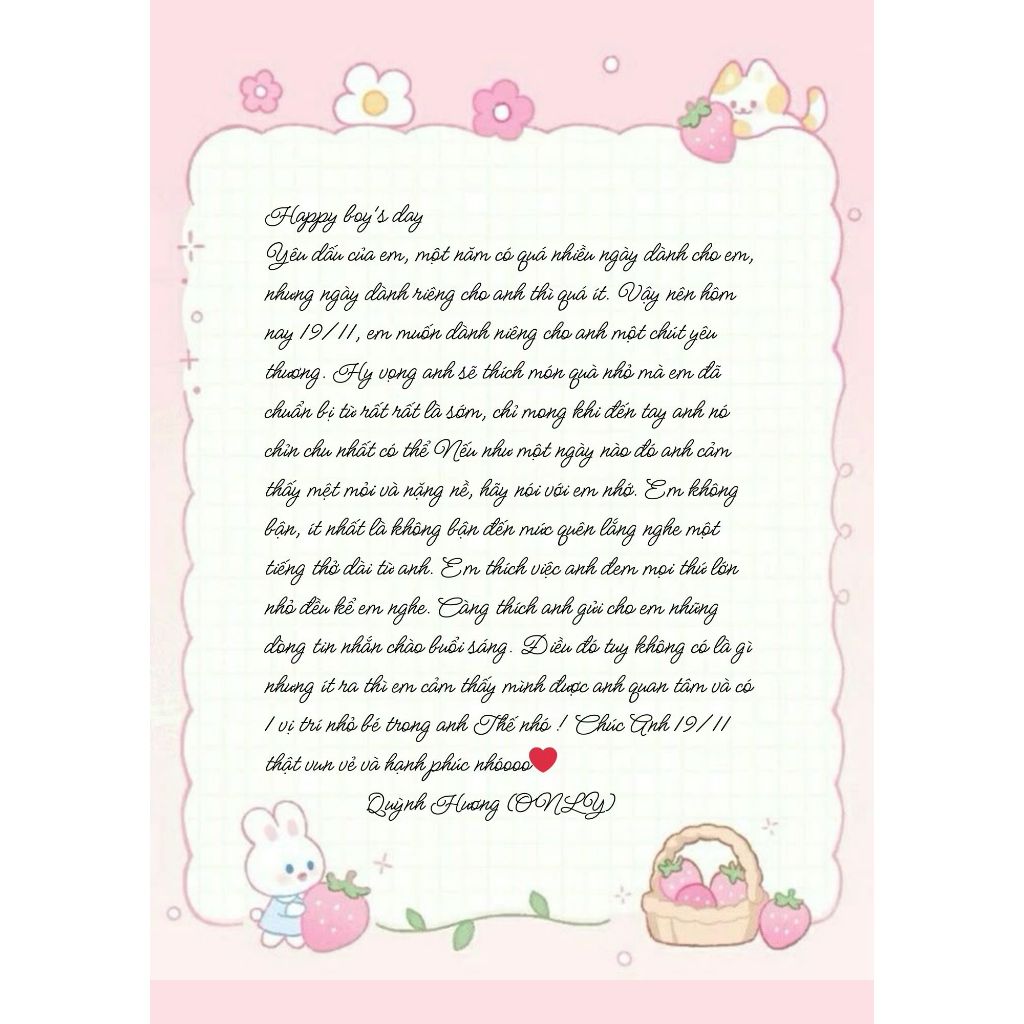 Happy boy's day
Yêu dấu của em, một năm có quá nhiều ngày dành cho em,
nhưng ngày dành riêng cho anh thì quá ít. Vậy nên hôm
nay 19/11, em muốn dành niêng cho anh một chút yêu
thương. Hy vọng anh sẽ thích món quà nhỏ mà em đã
chuẩn bị từ rất rất là sớm, chỉ mong khi đến tay anh nó
chỉn chu nhất có thể Nếu như một ngày nào đó anh cảm
thấy mệt mỏi và nặng nề, hãy nói với em nhớ. Em không
bận, ít nhất là không bận đến mức quên lắng nghe một
tiếng thở dài từ anh. Em thích việc anh đem mọi thứ lớn
nhỏ đều kể em nghe. Càng thích anh gửi cho em những
dòng tin nhắn chào buổi sáng. Điều đó tuy không có là gì
nhưng ít ra thì em cảm thấy mình được anh quan tâm và có
1 vị trí nhỏ bé trong anh Thế nhó ! Chúc Anh 19/11
thật vun vẻ và hạnh phúc nhóooo❤️
Quỳnh Hương (ONLY)